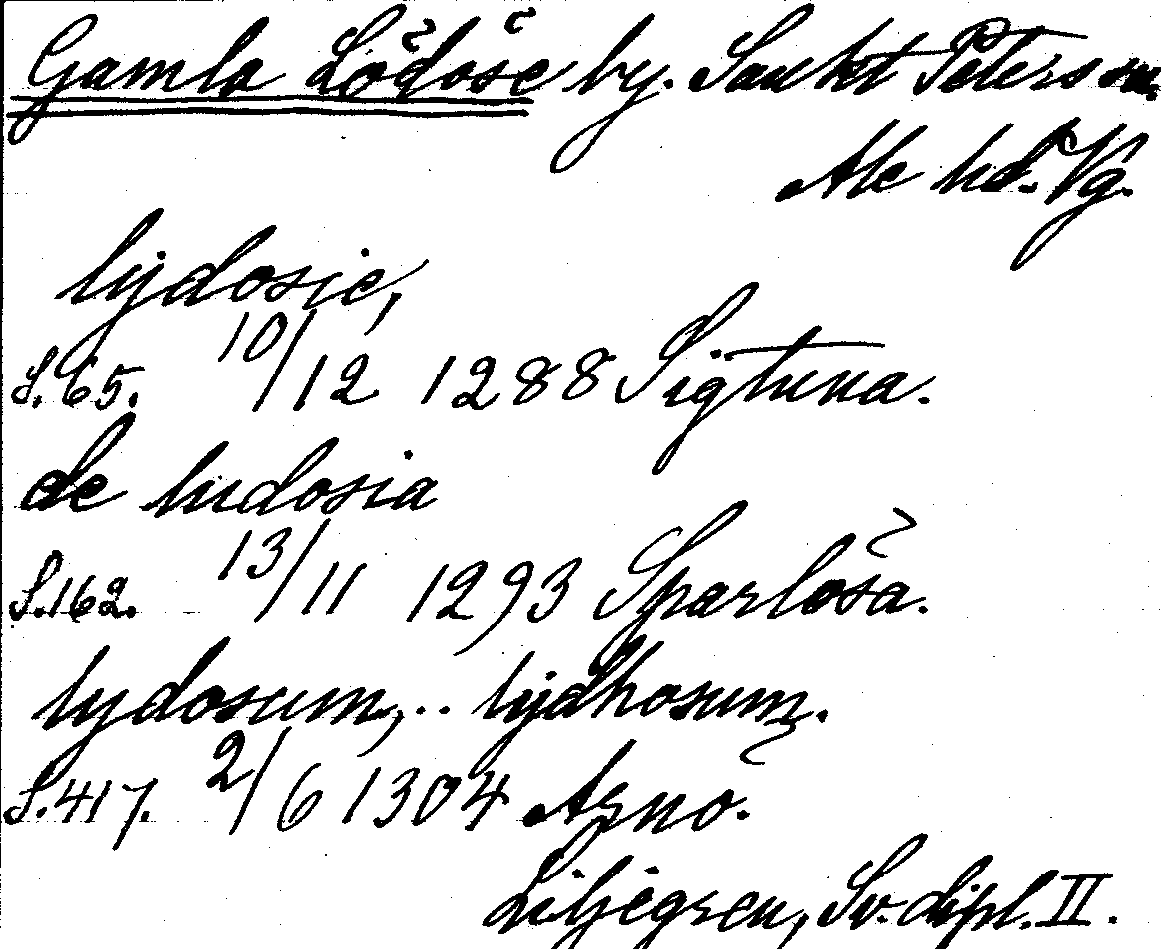 Gamla Lödöse by. Sankt Peters sn.
Ale hd. Vg.
lydosie,
S. 65. 10/12 1288 Sigtuna.
de ludosia
S. 162. 13/11 1293 Sparlösa.
lydosum, .. lydhosum.
S. 417. 2/6 1304 Aznö.
Liljegren, Sv. dipl. II.